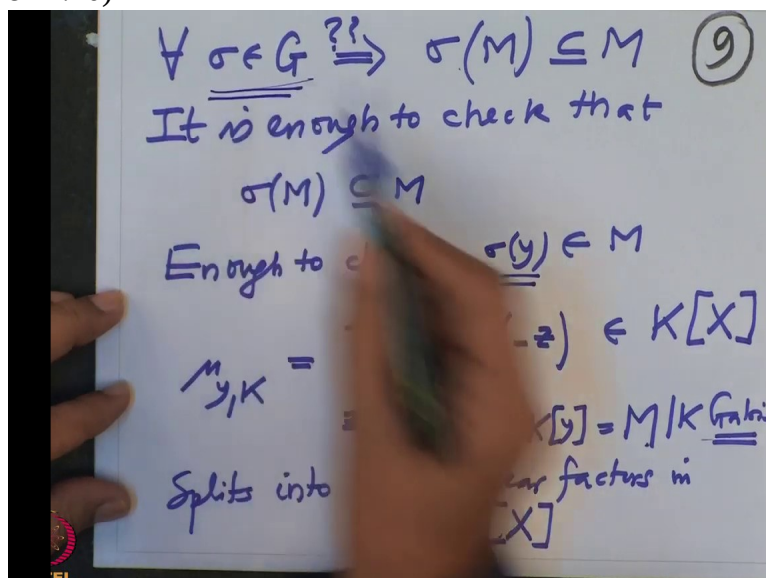 ∀ σ∈G ??⟹ σ(M) ⊆ M ⑨
It is enough to check that
σ(M) ⊆ M
Enough to σ(y) ∈ M
μ_{y,K} = -z) ∈ K[X]
[y] = M/K Galoi
Splits into factors in
[X]